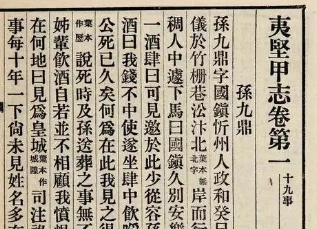 夷堅甲志卷第一十九事
孫九鼎
孫九鼎字國鎮忻州人政和癸巳
儀於竹柵巷沿汴北葉本無北字岸而行
稠人中遽下馬曰國鎮久別安樂
一酒肆曰可見邀於此少從容孫
酒曰我錢不中使遂坐肆中飲
公死已久矣何爲在此我見之得
葉本作歷說死時及孫送葬之事無不
姊輩飲酒自若並不相顧我憤恨
在何地曰見爲皇城葉本作城隍司注祿
事每十年一下尚未見姓名多在